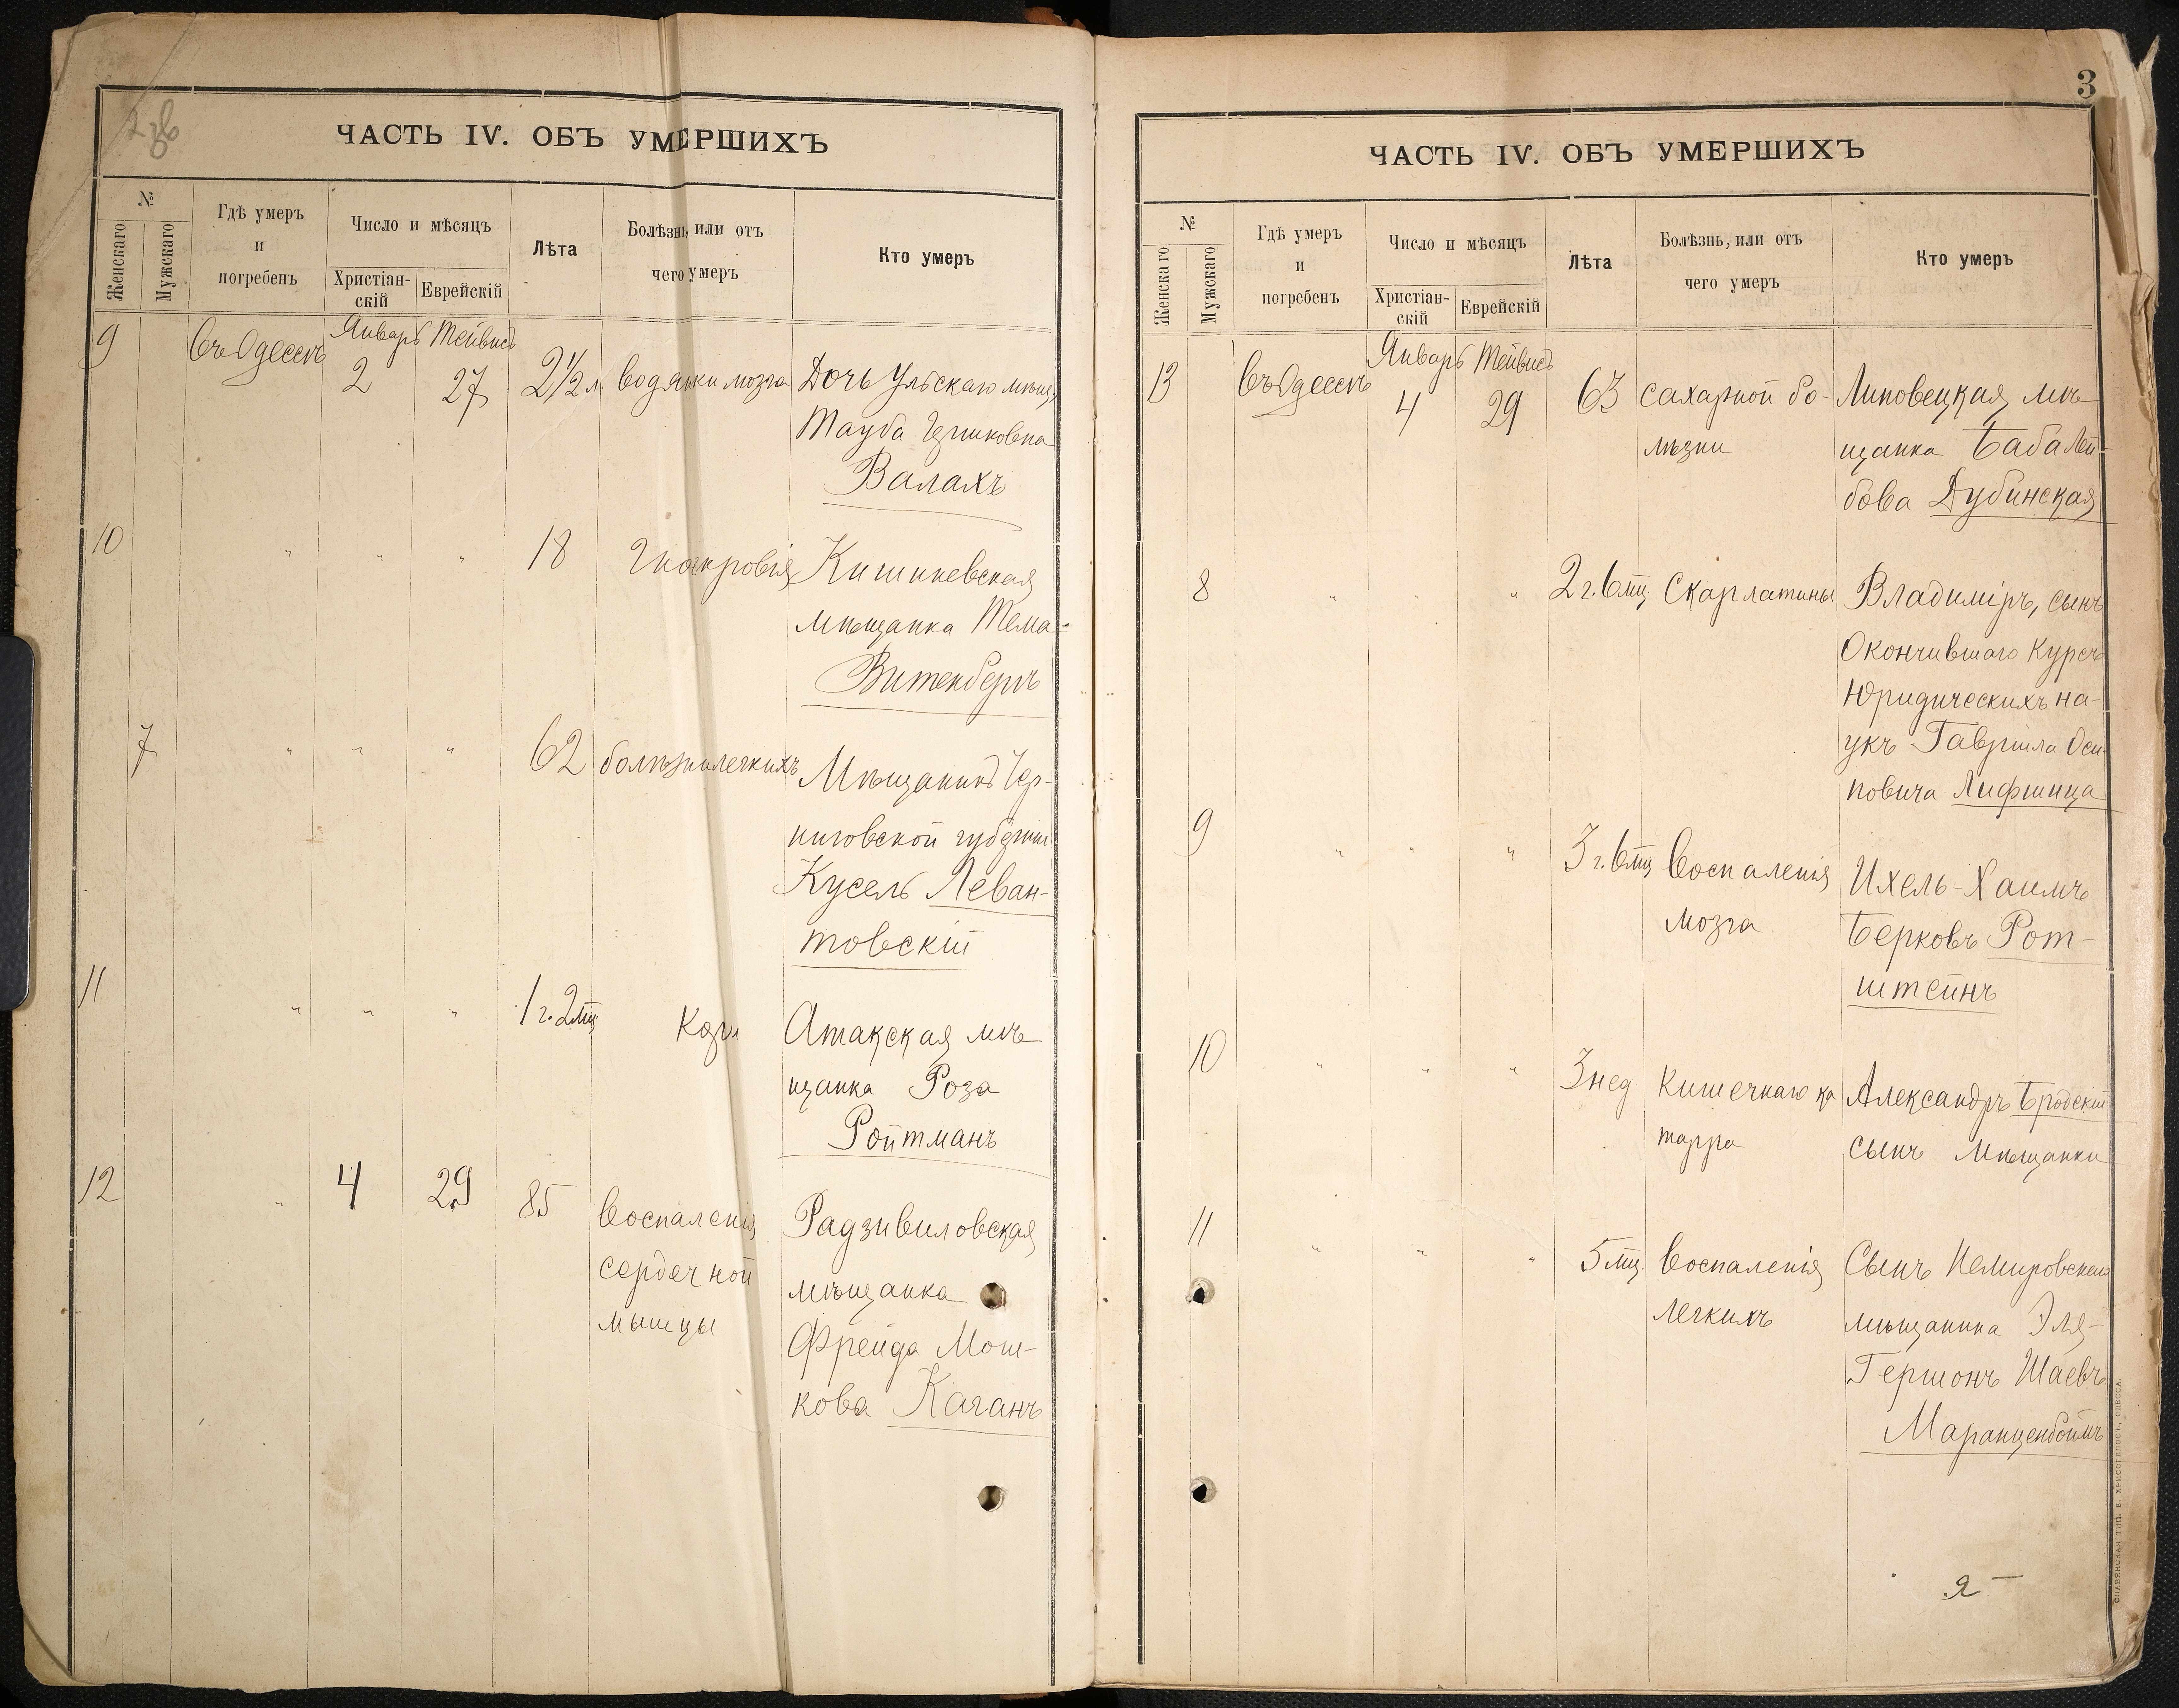 ЧАСТЬ IV. ОБЪ УМЕРШИХЪ
№
Женскаго
Мужскаго
Гдѣ умеръ
и
погребенъ
Число и мѣсяцъ
Христіан-
скій
Еврейскій
Лѣта
Болѣзнь, или отъ
чего умеръ
Кто умеръ
9 въ Одессѣ Январь Тейвисъ
2 27 2 1/2 л. водянки мозга Дочь мѣщ.
Тауба Гершковна
Валахъ
10 " " " 18 Гнокровія Кишиневская
мѣщанка Тема
Витенбергъ
7 " " " 62 болѣзни легкихъ Мѣщанинъ Чер-
ниговской губерніи
Кусель Леван-
товскій
11 " " " 1 г. 2 мц Кори Атакская мѣ-
щанка Роза
Ройтманъ
12 " 4 29 85 Воспаленія Радзивиловская
сердечной мѣщанка
мышцы Фрейда Мош-
кова Каганъ
3
ЧАСТЬ IV. ОБЪ УМЕРШИХЪ
№
Женскаго
Мужскаго
Гдѣ умеръ
и
погребенъ
Число и мѣсяцъ
Христіан-
скій
Еврейскій
Лѣта
Болѣзнь, или отъ
чего умеръ
Кто умеръ
13 въ Одессѣ Январь Тейвисъ
4 29 63 сахарной бо- Липовецкая мѣ-
лѣзни щанка Баба Лей-
бова Дубинская
8 " " " 2 г. 6 мц. Скарлатины Владиміръ, сынъ
Окончившаго Курсъ
Юридическихъ на-
укъ Гавріила Оси-
повича Лифшица
9 " " " 3 г. 6 мц Воспаленія Ихель-Хаимъ
мозга Берковъ Рот-
штейнъ
10 " " " 3 нед. Кишечнаго ка Александръ Бродскій
тарра сынъ мѣщанки
11 " " " 5 мц. Воспаленія Сынъ Немировскаго
легкихъ мѣщанина Эля-
Гершонъ Шаевъ
Маранценбоймъ
СЛАВЯНСКАЯ ТИП. Е. ХРИСОГЕЛОСЪ, ОДЕССА.